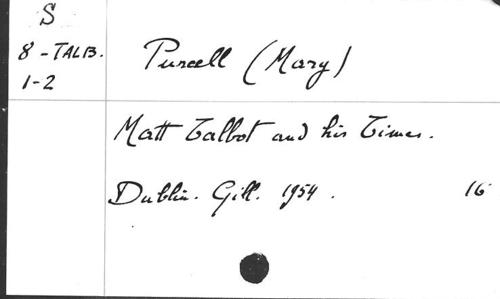 S
8 - TALB. Purcell (Mary)
1-2
Matt Talbot and his Times.
Dublin. Gill. 1954. 16